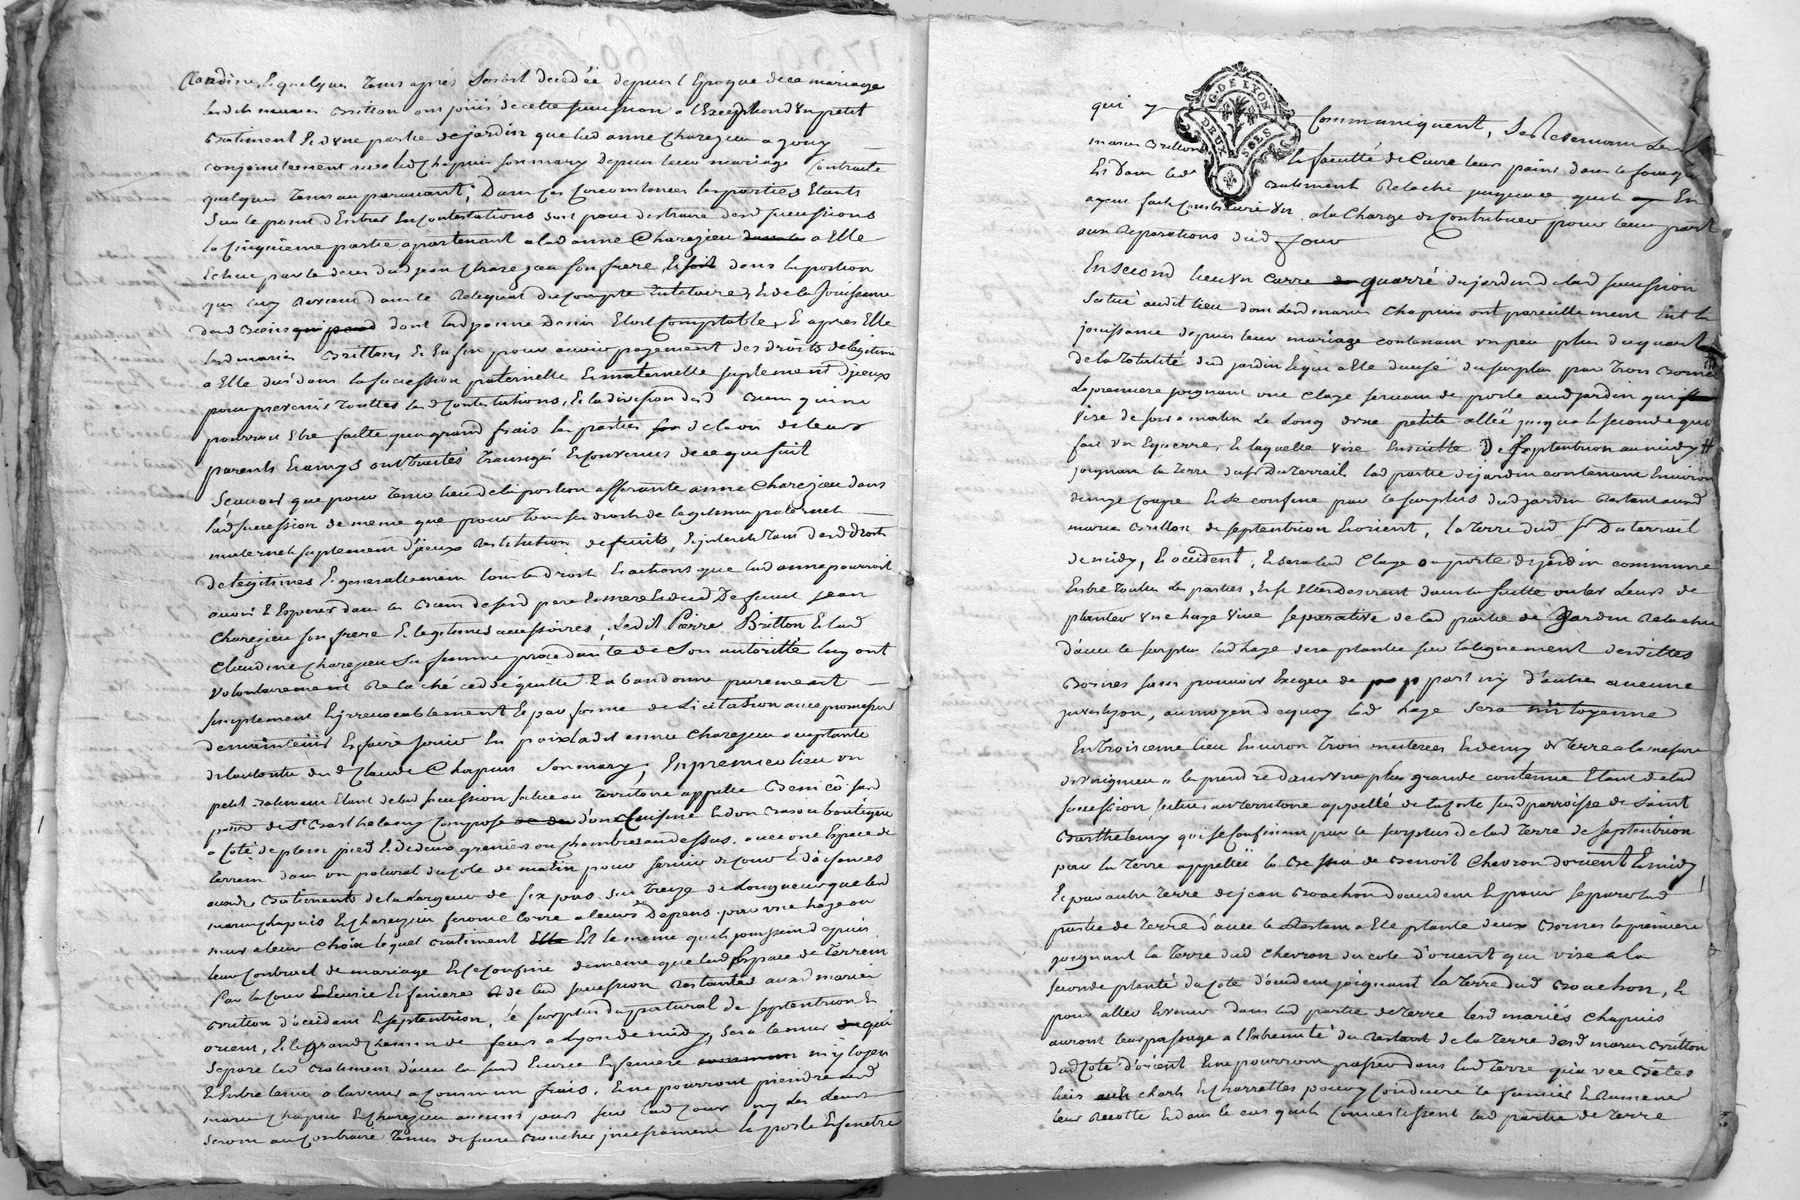 Claudine, & quelques tems aprés seroit decedée depuis l'Epoque de ce mariage
lesd. mariés Britton ont joüi de cette sucession a l'Exception d'un petit
Batiment & d'une partie de jardin que lad. anne Charezieu a jouy
conjointement avec led. Chapuis son mary depuis leur mariage Contracté
quelques tems auparavant; Dans ces Circonstances les parties Etants
sur le point d'Entrer En Contestations soit pour distraire desd. sucessions
la Cinquieme partie apartenant a lad. anne Charezieu a Elle
Echue par le deces dud. jean Charezieu son frere, dans la portion
qui luy Revient dans le Reliquat du Compte tutelaire, & de la joüissance
desd. Biens dont lad. Etoit Comptable, & aprés Elle
lesd. mariés Brittons & Enfin pour avoir payement des droits de legitime
a Elle dus dans la sucession paternelle & maternelle suplement d'jceux
pour prevenir touttes lesd. Contestations, & la division desd. Biens qui ne
pourroit Etre faitte qu'a grand frais les parties de l'avis de leurs
parents & amys ont traités transigés & Convenus de ce que suit
Sçavoir que pour tenir lieu de la portion afferante a anne Charezieu dans
lad. sucession de meme que pour tous ses droits de legitime paternel
maternel suplement d'jceux Restitution de fruits, & jnterets tant desd. Droits
de legitimes & generallement tous les droits & actions que lad. anne pourroit
avoir & Esperer dans les Biens desd. pere & mere & dud. Defunt jean
Charezieu son frere & legitimes accessoires, Ledit Pierre Britton & lad.
Claudine Charezieu sa femme procedante de son autoritté luy ont
volontairement Relaché cedé quitté & abandonné purement
simplement & jrrevocablement & par forme de Licitation avec promesse
de maintenir & faire jouir En paix lad. anne Charezieu acceptante
de l'autorité dud. Claude Chapuis son mary, En premier lieu un
petit Batiment Etant de lad. sucession situé au territoire appellé
paroisse de St. Barthelemy Composé d'une Cuisine & d'un Bas ou boutique
a coté de plain pied & de deux greniers ou chambres au dessus, avec une Espace de
terrein dans un patural du coté de matin pour servir de Cour & d'aisances
aud. Batiments de la largeur de six pas sur treize de Longueur que lesd.
mariés Chapuis & Charezieu seront Clorre a leurs Depens par une haye ou
mur a leur choix lequel Batiment Est le meme qu'ils joüissent depuis
leur Contract de mariage & se Confine de meme que lad. Espace de terrein
Par la Cour Ecurie & feniere de lad. sucession Restantes aux d. mariés
Britton d'occident & septentrion, le surplus du patural de septentrion &
orient, & le grand Chemin de feurs a Lyon de midy, sera le mur qui
separe lad. Batiment d'avec la sud. Ecurie & feniere mytoyen
& Entretenu a l'avenir a Commun frais, & ne pourront prendre lesd.
mariés Chapuis & Charezieu aucuns jours sur lad. Cour ny Les Leurs
seront au Contraire tenus de faire Boucher jncessament la porte & fenetre
qui y Communiquent, se Reservant Les
mariés Britton la faculté de Cuire leurs pains dans le four qui
Est Dans led. Batiment Relaché jusqu'a ce qu'ils En
ayent fait Construire un, a la Charge de Contribuer pour leur part
aux Reparations dud. four
En second lieu un quarré de jardin de lad. sucession
situé audit lieu dont lesd. mariés Chapuis ont pareillement Eut la
joüissance depuis leur mariage contenant un peu plus du quart
de la totalité dud. jardin & qui a Eté divisé du surplus par trois Bornes
La premiere joignant une claye servant de porte aud. jardin qui
vise de soir a matin Le Long d'une petite allée jusqu'a la seconde qui
fait un Equerre, & laquelle vise Ensuitte de septentrion au midy
joignant la terre du Sr. Duterrail lad. partie de jardin contenant Environ
douze Coupe & se confine par le surplus dud. jardin Restant auxd.
mariés Britton de septentrion & orient, la terre dud. Sr. Duterrail
de midy, & occident, & sera lad. Claye ou porte de jardin commune
Entre touttes les parties, & si Elles desirent dans la suitte ou les Leurs de
planter une haye vive separative de lad. partie de jardin Relachée
d'avec le surplus lad. haye sera plantée sur l'alignement desdittes
Bornes sans pouvoir Exiger de part ny d'autre aucune
, au moyen de quoy lad. haye sera mitoyenne
En troisieme lieu Environ trois meterées & demy de terre a la mesure
a les prendre dans une plus grande contenue Etant de lad.
sucession, situées au territoire appellé de la Coste sud. parroisse de Saint
Barthelemy qui se Confinent par le surplus de lad. terre de septentrion
par la terre appellée la de Benoit Chevron d'orient & midy
& par autre terre de jean Bouchon d'occident & pour separer lad.
partie de terre d'avec le Restant a Eté planté deux Bornes la premiere
joignant la terre dud. Chevron du coté d'orient qui vise a la
seconde plantée du coté d'occident joignant la terre dud. Bouchon, &
pour aller & venir dans lad. partie de terre lesd. mariés Chapuis
auront leur passage a l'Extremité du Restant de la terre desd. mariés Britton
du Coté d'orient & ne pourront passer dans lad. terre qu'avec Bêtes
liés chars & charrettes pour y Conduire le fumier & Ramener
leur Recolte & dans le cas qu'ils Convertissent lad. partie de terre
G. DE LYON
DEUX SOLS